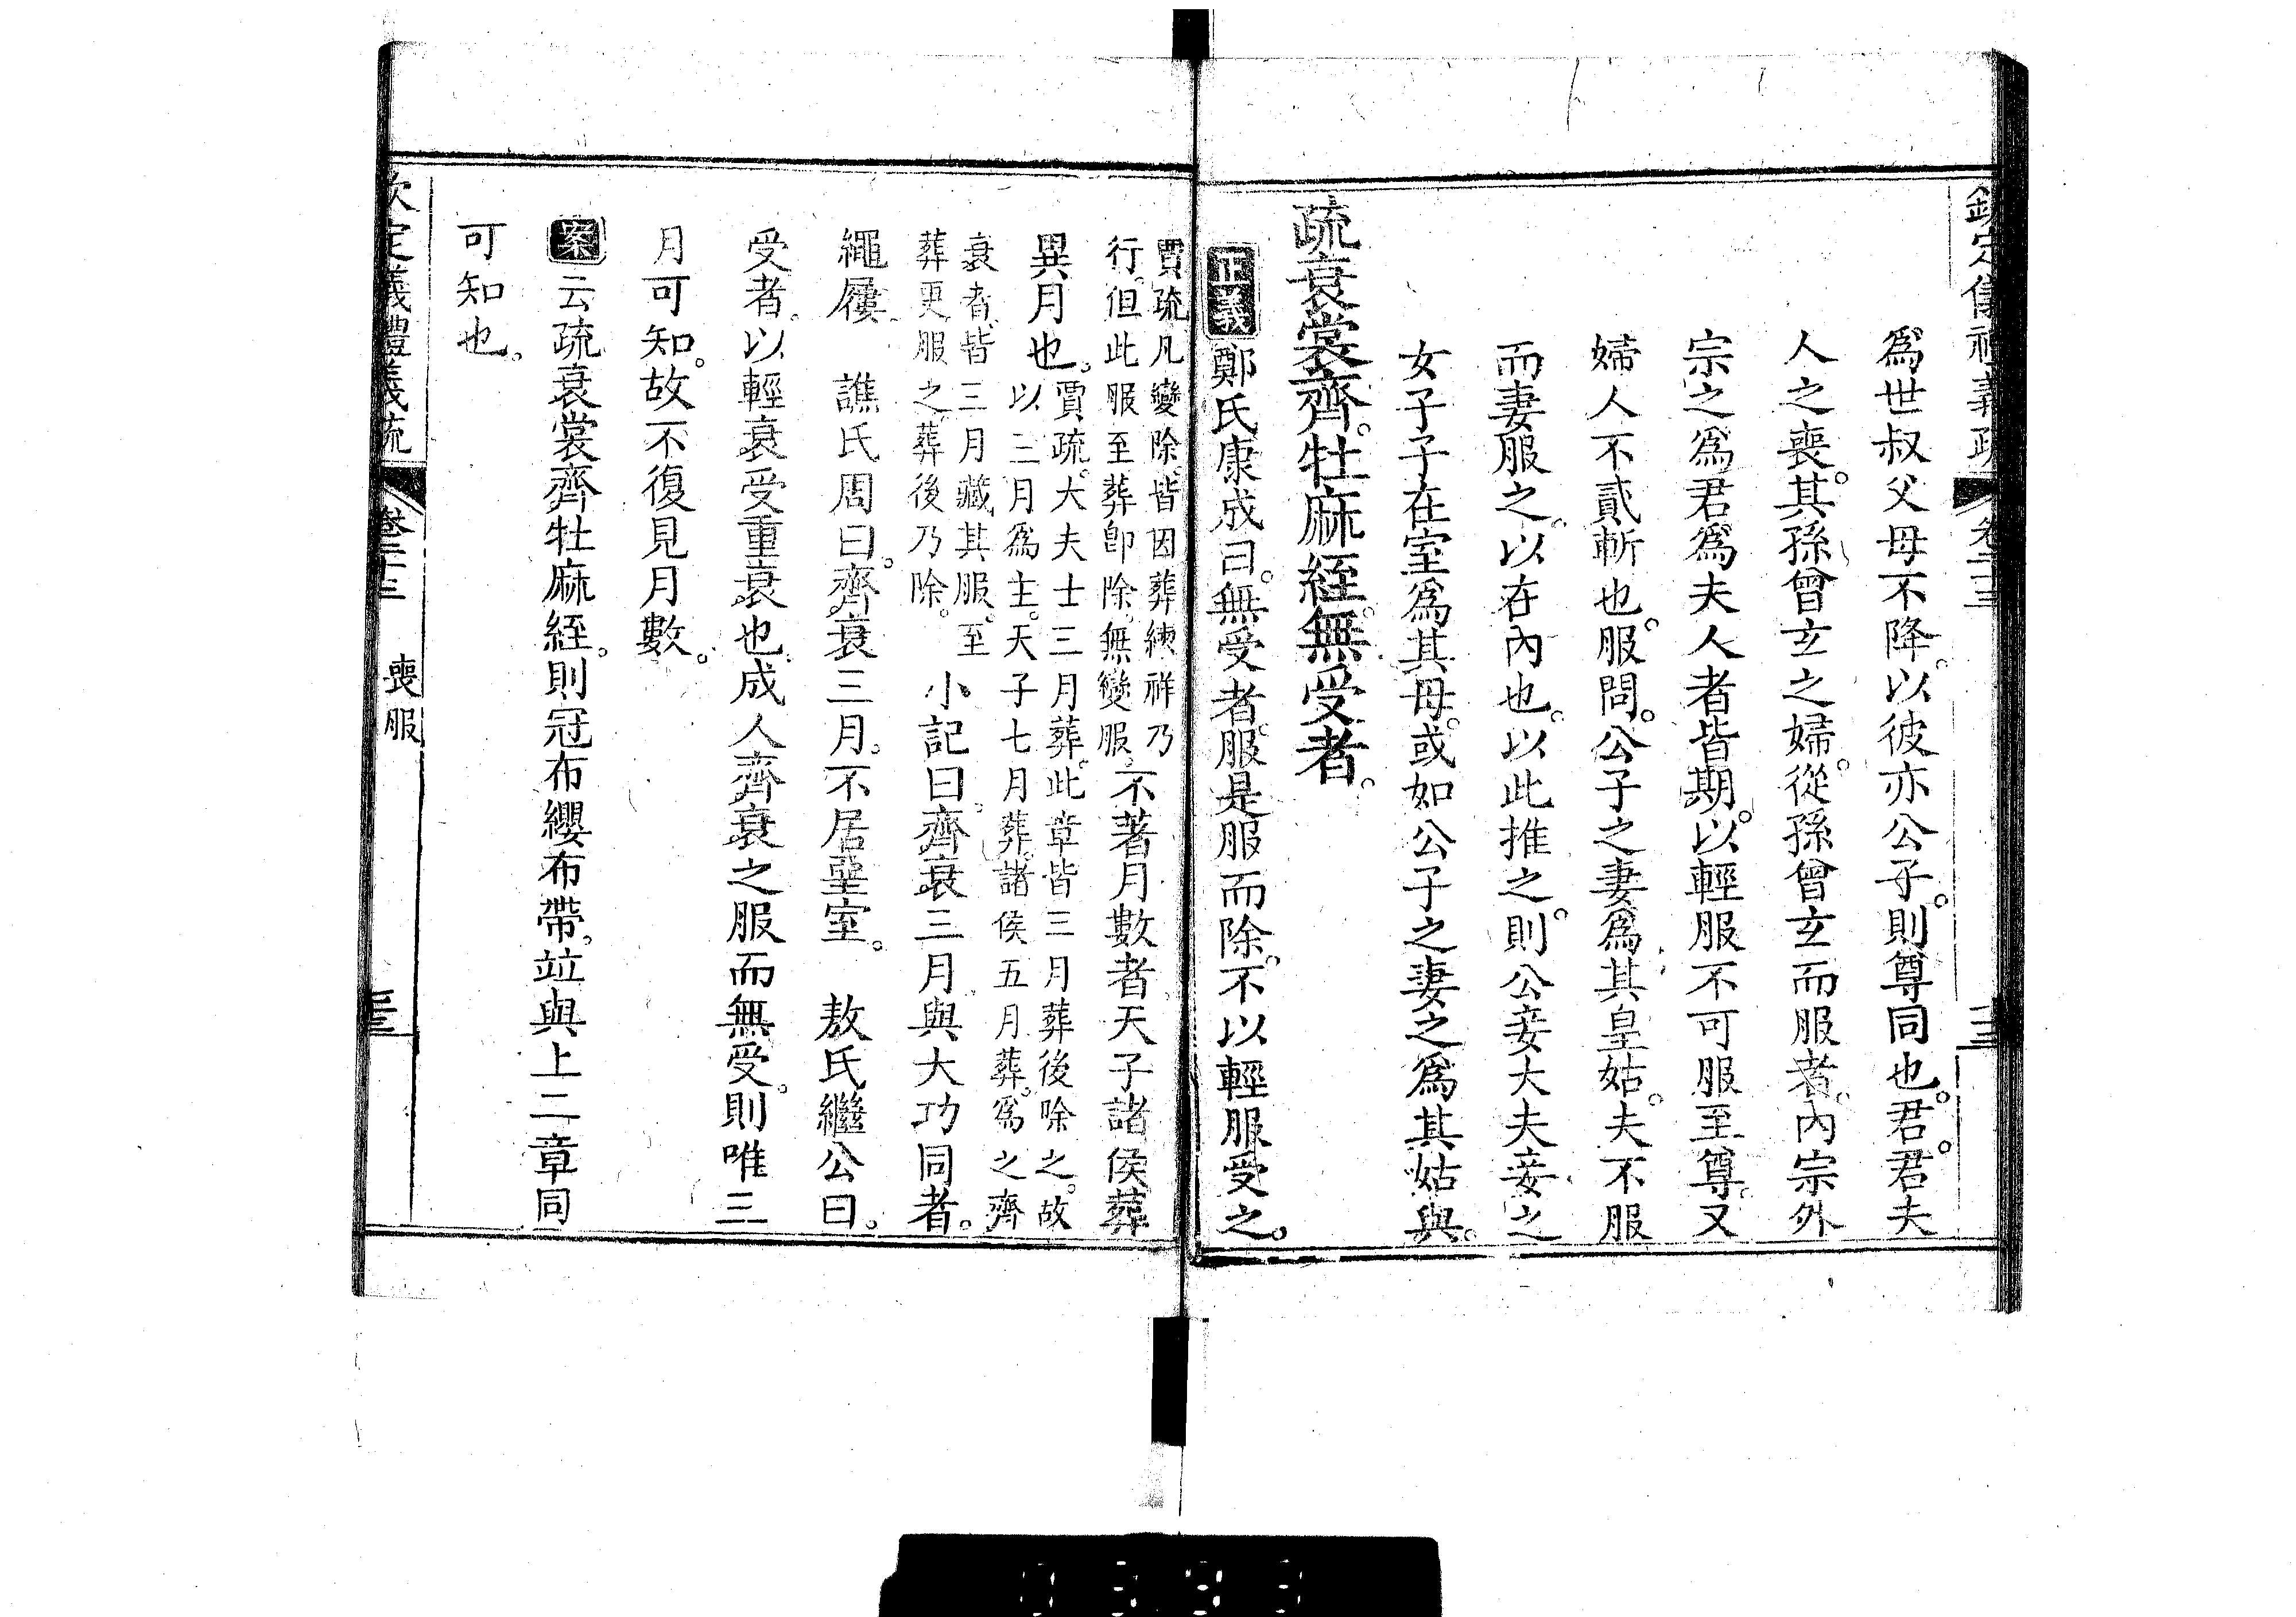 欽定儀禮義疏 卷二十三
爲世叔父母不降以彼亦公子則尊同也君君夫
人之喪其孫曾玄之婦從孫曾玄而服者內宗外
宗之爲君爲夫人者皆期以輕服不可服至尊又
婦人不貳斬也服問公子之妻爲其皇姑夫不服
而妻服之以在內也以此推之則公妾大夫妾之
女子子在室爲其母或如公子之妻之爲其姑與
疏衰裳齊牡麻絰無受者
正義 鄭氏康成曰無受者服是服而除不以輕服受之
賈疏凡變除皆因葬練祥乃
行但此服至葬卽除無變服
不著月數者天子諸侯葬
異月也
賈疏大夫士三月葬此章皆三月葬後除之故
以三月爲主天子七月葬諸侯五月葬爲之齊
衰者皆三月藏其服至
葬更服之葬後乃除
小記曰齊衰三月與大功同者
繩屨 譙氏周曰齊衰三月不居堊室 敖氏繼公曰
受者以輕衰受重衰也成人齊衰之服而無受則唯三
月可知故不復見月數
案 云疏衰裳齊牡麻絰則冠布纓布帶竝與上二章同
可知也
欽定儀禮義疏 卷二十三 喪服